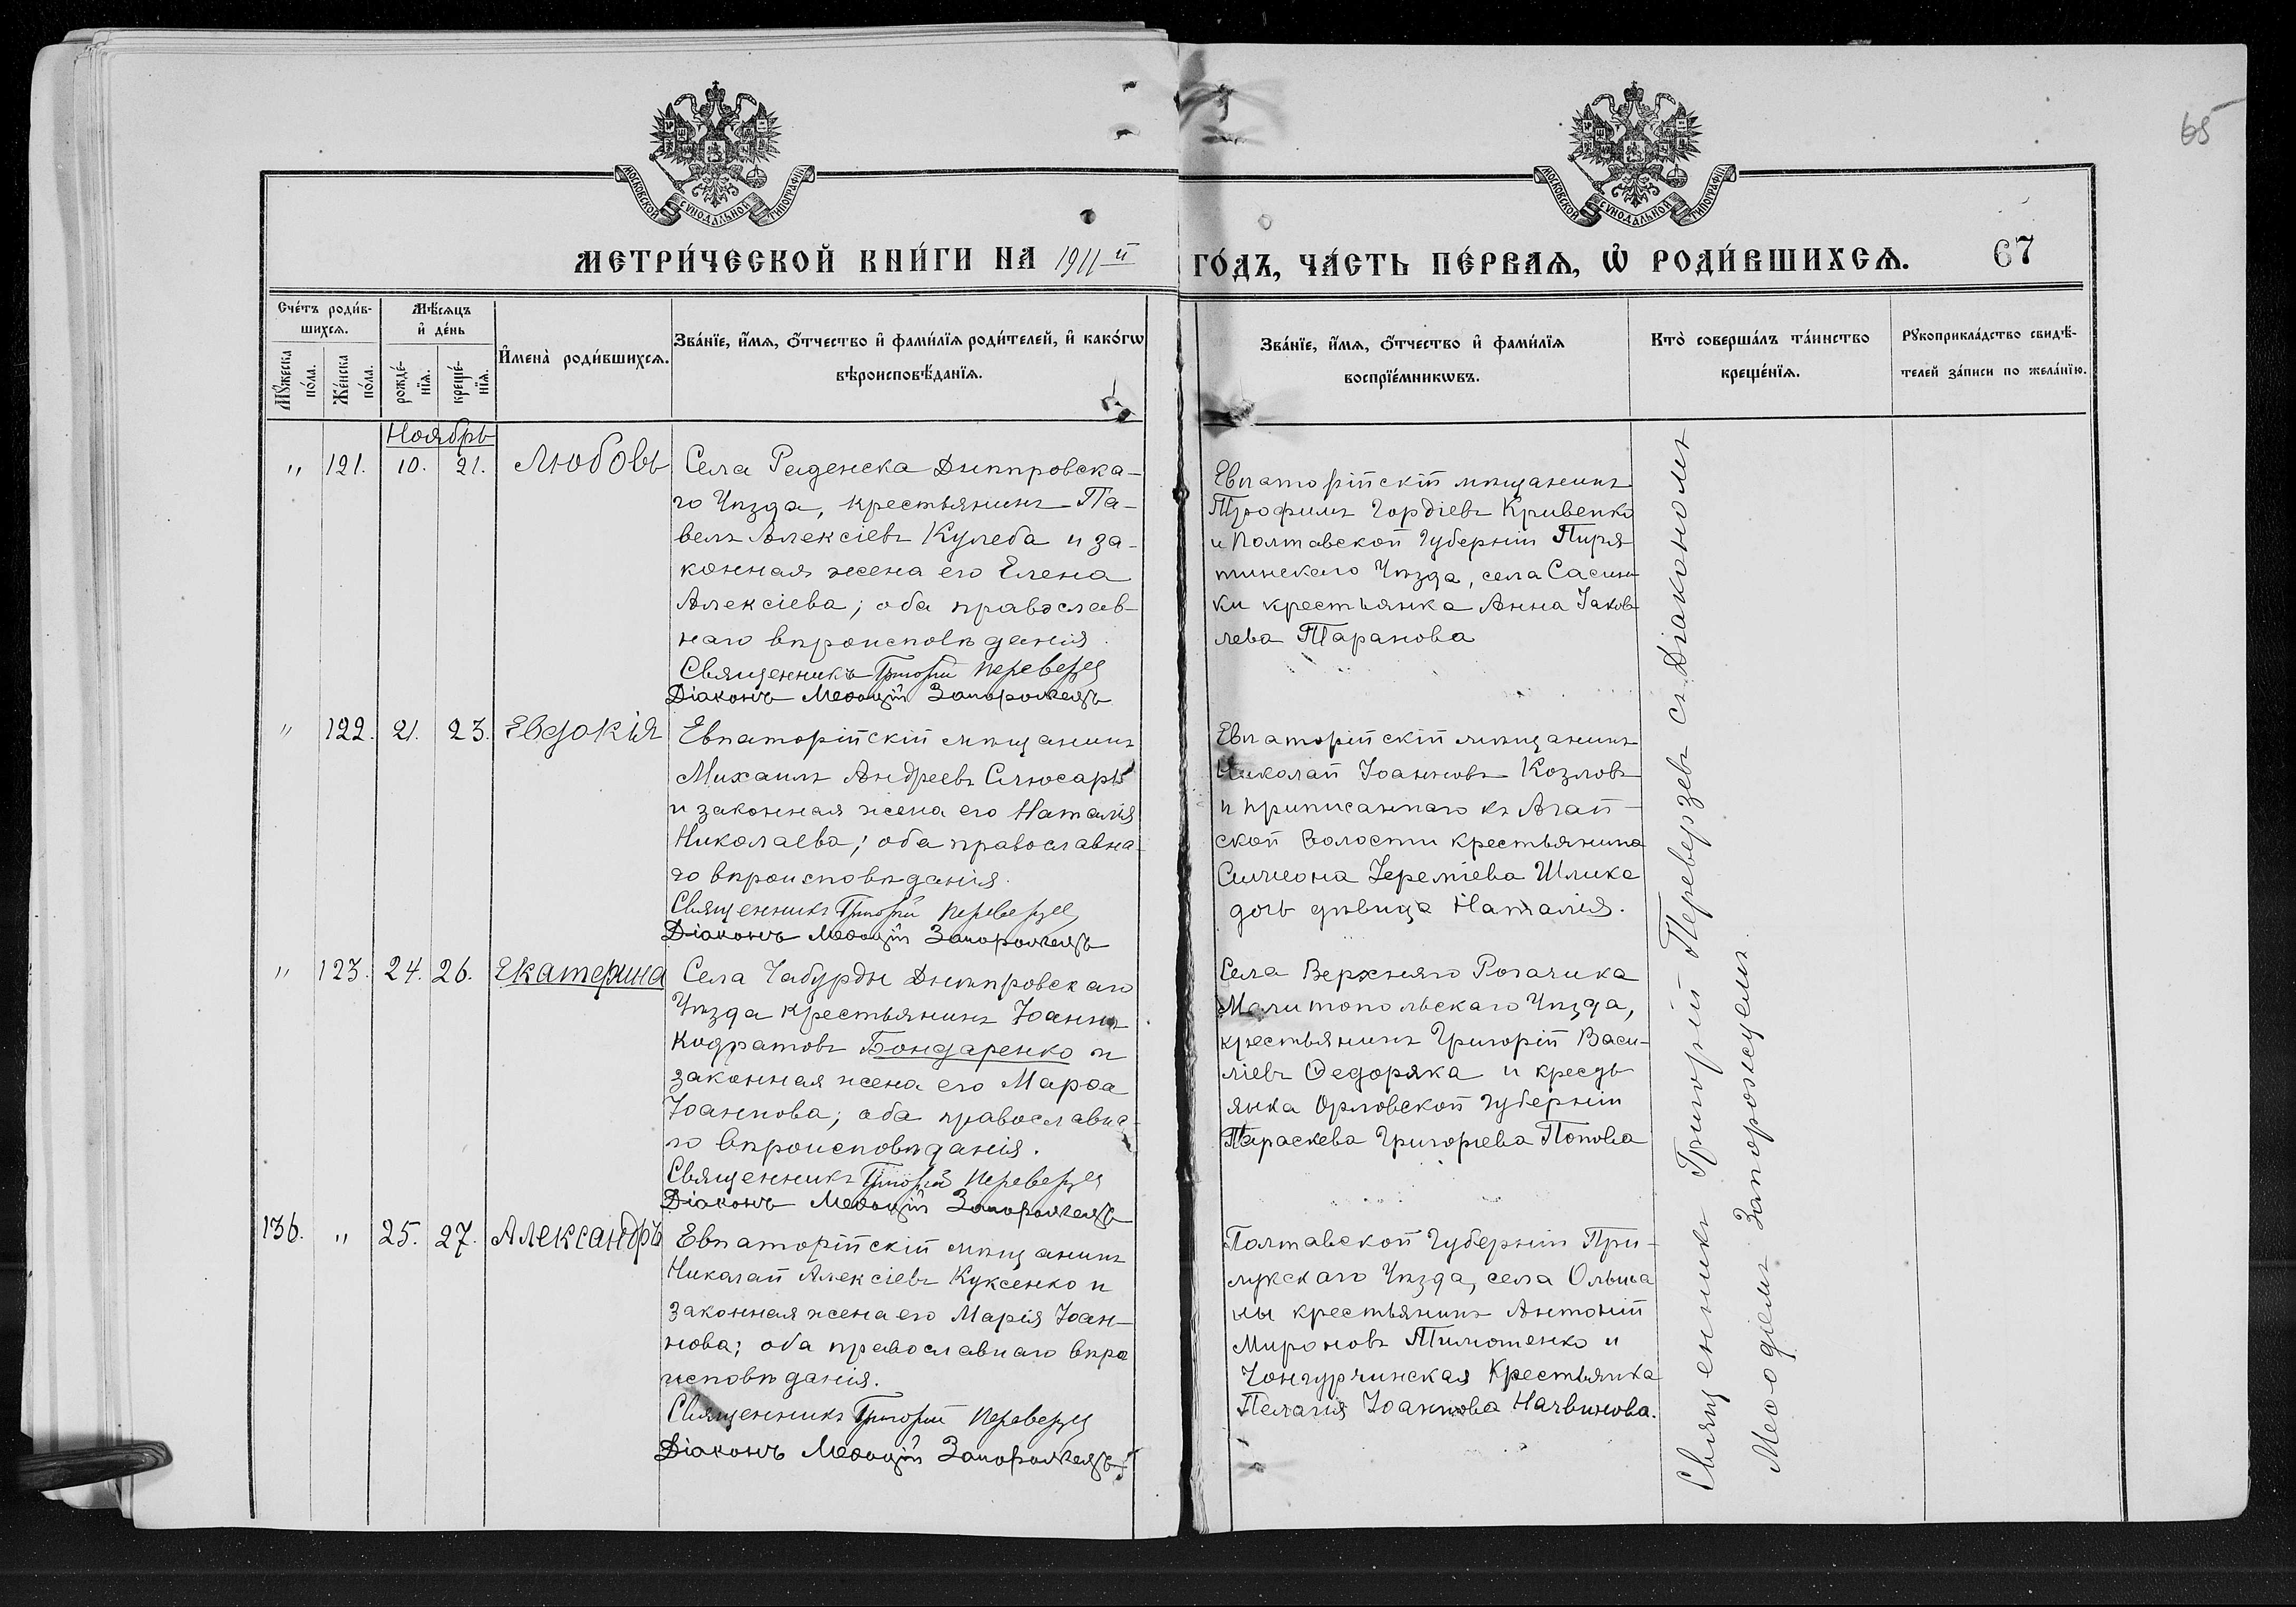 65
МОСКОВСКОЙ СѴНОДАЛЬНОЙ ТИПОГРАФІИ
МОСКОВСКОЙ СѴНОДАЛЬНОЙ ТИПОГРАФІИ
МЕТРИ́ЧЕСКОЙ КНИ́ГИ НА 1911й ГО́ДЪ, ЧА́СТЬ ПЕ́РВАѦ, Ѡ҆ РОДИ́ВШИХСѦ. 67
Сче́тъ роди́в-
шихсѧ.
Мꙋ́жеска по́ла.
Же́нска по́ла.
Мѣ́сѧцъ
и҆ де́нь
рожде́-
нїѧ.
креще́-
нїѧ.
И҆мена̀ роди́вшихсѧ.
Зва́нїе, и҆́мѧ, ѻ҆́тчество и҆ фами́лїѧ роди́телей, и҆ како́гѡ
вѣроисповѣ́данїѧ.
Зва́нїе, и҆́мѧ, ѻ҆́тчество и҆ фами́лїѧ
воспрїе́мникѡвъ.
Кто̀ соверша́лъ та́инство
креще́нїѧ.
Рꙋкоприкла́дство свидѣ́-
телей за́писи по жела́нїю.
Ноябрь
" 121. 10. 21. Любовь
Села Раденска Днѣпровска-
го Уѣзда, крестьянинъ Па-
велъ Алексіевъ Кулеба и за-
конная жена его Елена
Алексіева; оба православ-
наго вѣроисповѣданія.
Священникъ Григорій Переверзев
Діаконъ Меѳодій Запорожецъ
Евпаторійскій мѣщанинъ
Трофимъ Гордіевъ Кривенко
и Полтавской Губерніи Пиря
тинскаго Уѣзда, села Сасин-
ки крестьянка Анна Іаков
лева Таранова
" 122. 21. 23. Евдокія
Евпаторійскій мѣщанинъ
Михаилъ Андреевъ Слюсарь
и законная жена его Наталія
Николаева; оба православна-
го вѣроисповѣданія.
Священникъ Григорій Переверзев
Діаконъ Меѳодій Запорожецъ
Евпаторійскій мѣщанинъ
Николай Іоанновъ Козловъ
и приписаннаго къ Агай-
ской Волости крестьянина
Симеона Іереміева Шлика
дочь дѣвица Наталія.
" 123. 24. 26. Екатерина
Села Чабурды Днѣпровскаго
Уѣзда крестьянинъ Іоаннъ
Кодратовъ Бондаренко и
законная жена его Марѳа
Іоаннова; оба православна-
го вѣроисповѣданія.
Священникъ Григорій Переверзев
Діаконъ Меѳодій Запорожецъ
Села Верхняго Рогачика
Мелитопольскаго Уѣзда,
крестьянинъ Григорій Васи-
ліевъ Ѳедоряка и кресть
янка Орловской Губерніи
Параскева Григоріева Попова
136. " 25. 27. Александръ
Евпаторійскій мѣщанинъ
Николай Алексіевъ Куксенко и
законная жена его Марія Іоан-
нова; оба православнаго вѣро
исповѣданія.
Священникъ Григорій Переверзев
Діаконъ Меѳодій Запорожецъ
Полтавской Губерніи При-
лукскаго Уѣзда, села Ольша
ны крестьянинъ Антоній
Мироновъ Тимошенко и
Чонгурчинская Крестьянка
Пелагія Іоаннова Начвинова.
Священникъ Григорій Переверзевъ съ Діакономъ
Меѳодіемъ Запорожцемъ.